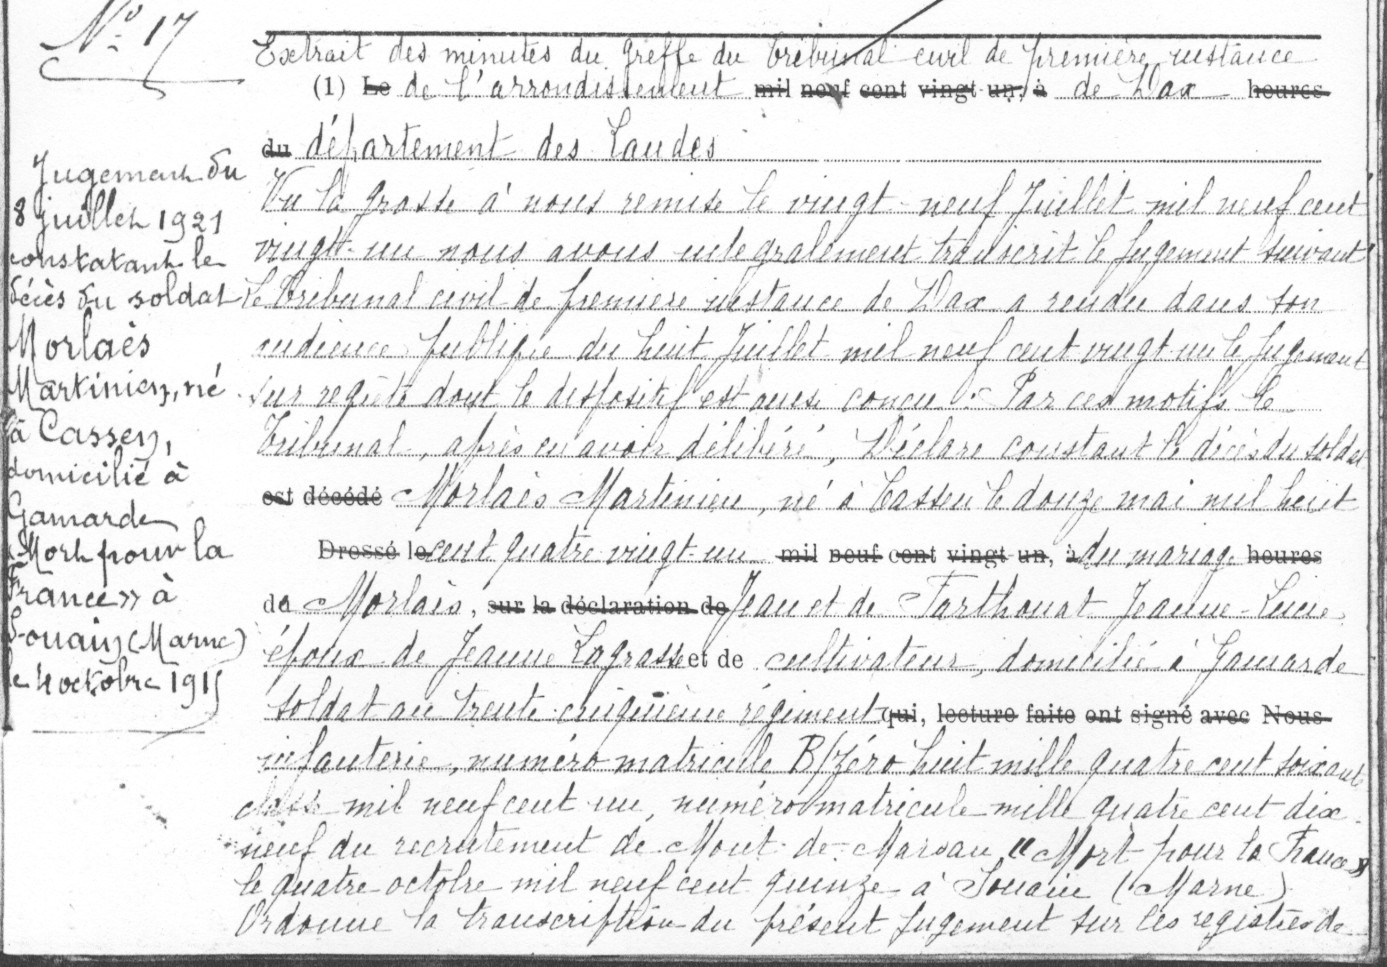 N° 17
Jugement du
8 juillet 1921
constatant le
décès du soldat
Morlaès
Martinien, né
à Cassen,
domicilié à
Gamarde
« Mort pour la
France » à
Souain (Marne)
le 4 octobre 1915
Extrait des minutes du greffe du tribunal civil de première instance
(1) Le de l'arrondissement mil neuf cent vingt un, à de Dax heures
du département des Landes
Vu la grosse à nous remise le vingt-neuf Juillet mil neuf cent
vingt-un nous avons intégralement transcrit le jugement suivant
le tribunal civil de première instance de Dax a rendu dans son
audience publique du huit Juillet mil neuf cent vingt un le jugement
sur requête dont le dispositif est ainsi conçu : Par ces motifs le
Tribunal, après en avoir délibéré, Déclare constant le décès du soldat
est décédé Morlaès Martinien, né à Cassen le douze mai mil huit
Dressé le cent quatre vingt-un mil neuf cent vingt un, à du mariage heures
de Morlaès, sur la déclaration de Jean et de Farthouat Jeanne-Lucie
époux de Jeanne Lagrasse et de cultivateur, domicilié à Gamarde
soldat au trente cinquième régiment qui, lecture faite ont signé avec Nous
infanterie, numéro matricule B/zéro huit mille quatre cent soixante
classe mil neuf cent un, numéro matricule mille quatre cent dix
neuf du recrutement de Mont-de-Marsan "Mort pour la France"
le quatre octobre mil neuf cent quinze à Souain (Marne)
Ordonne la transcription du présent jugement sur les registres de